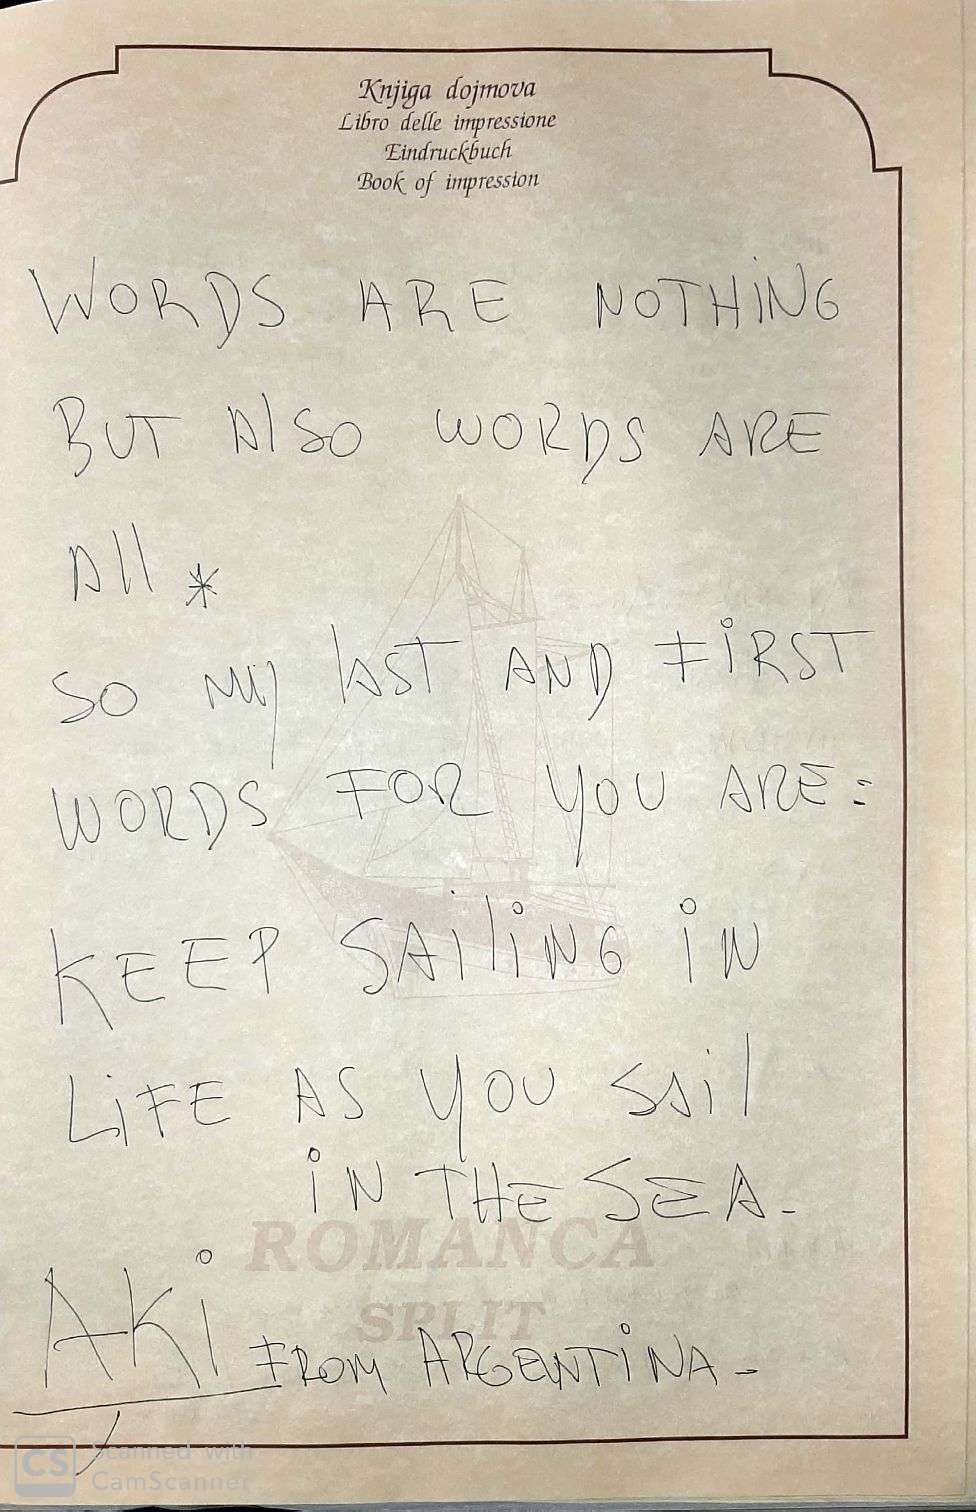 Knjiga dojmova
Libro delle impressione
Eindruckbuch
Book of impression
WORDS ARE NOTHiNG
BUT AlSO WORDS ARE
All *
SO My lAST AND FiRST
WORDS FOR YOU ARE:
KEEP SAiliNG iN
LiFE AS YOU SAil
iN THE SEA.
ROMANCA
SPLIT
AKi FROM ARGENTiNA-
CS Scanned with
CamScanner